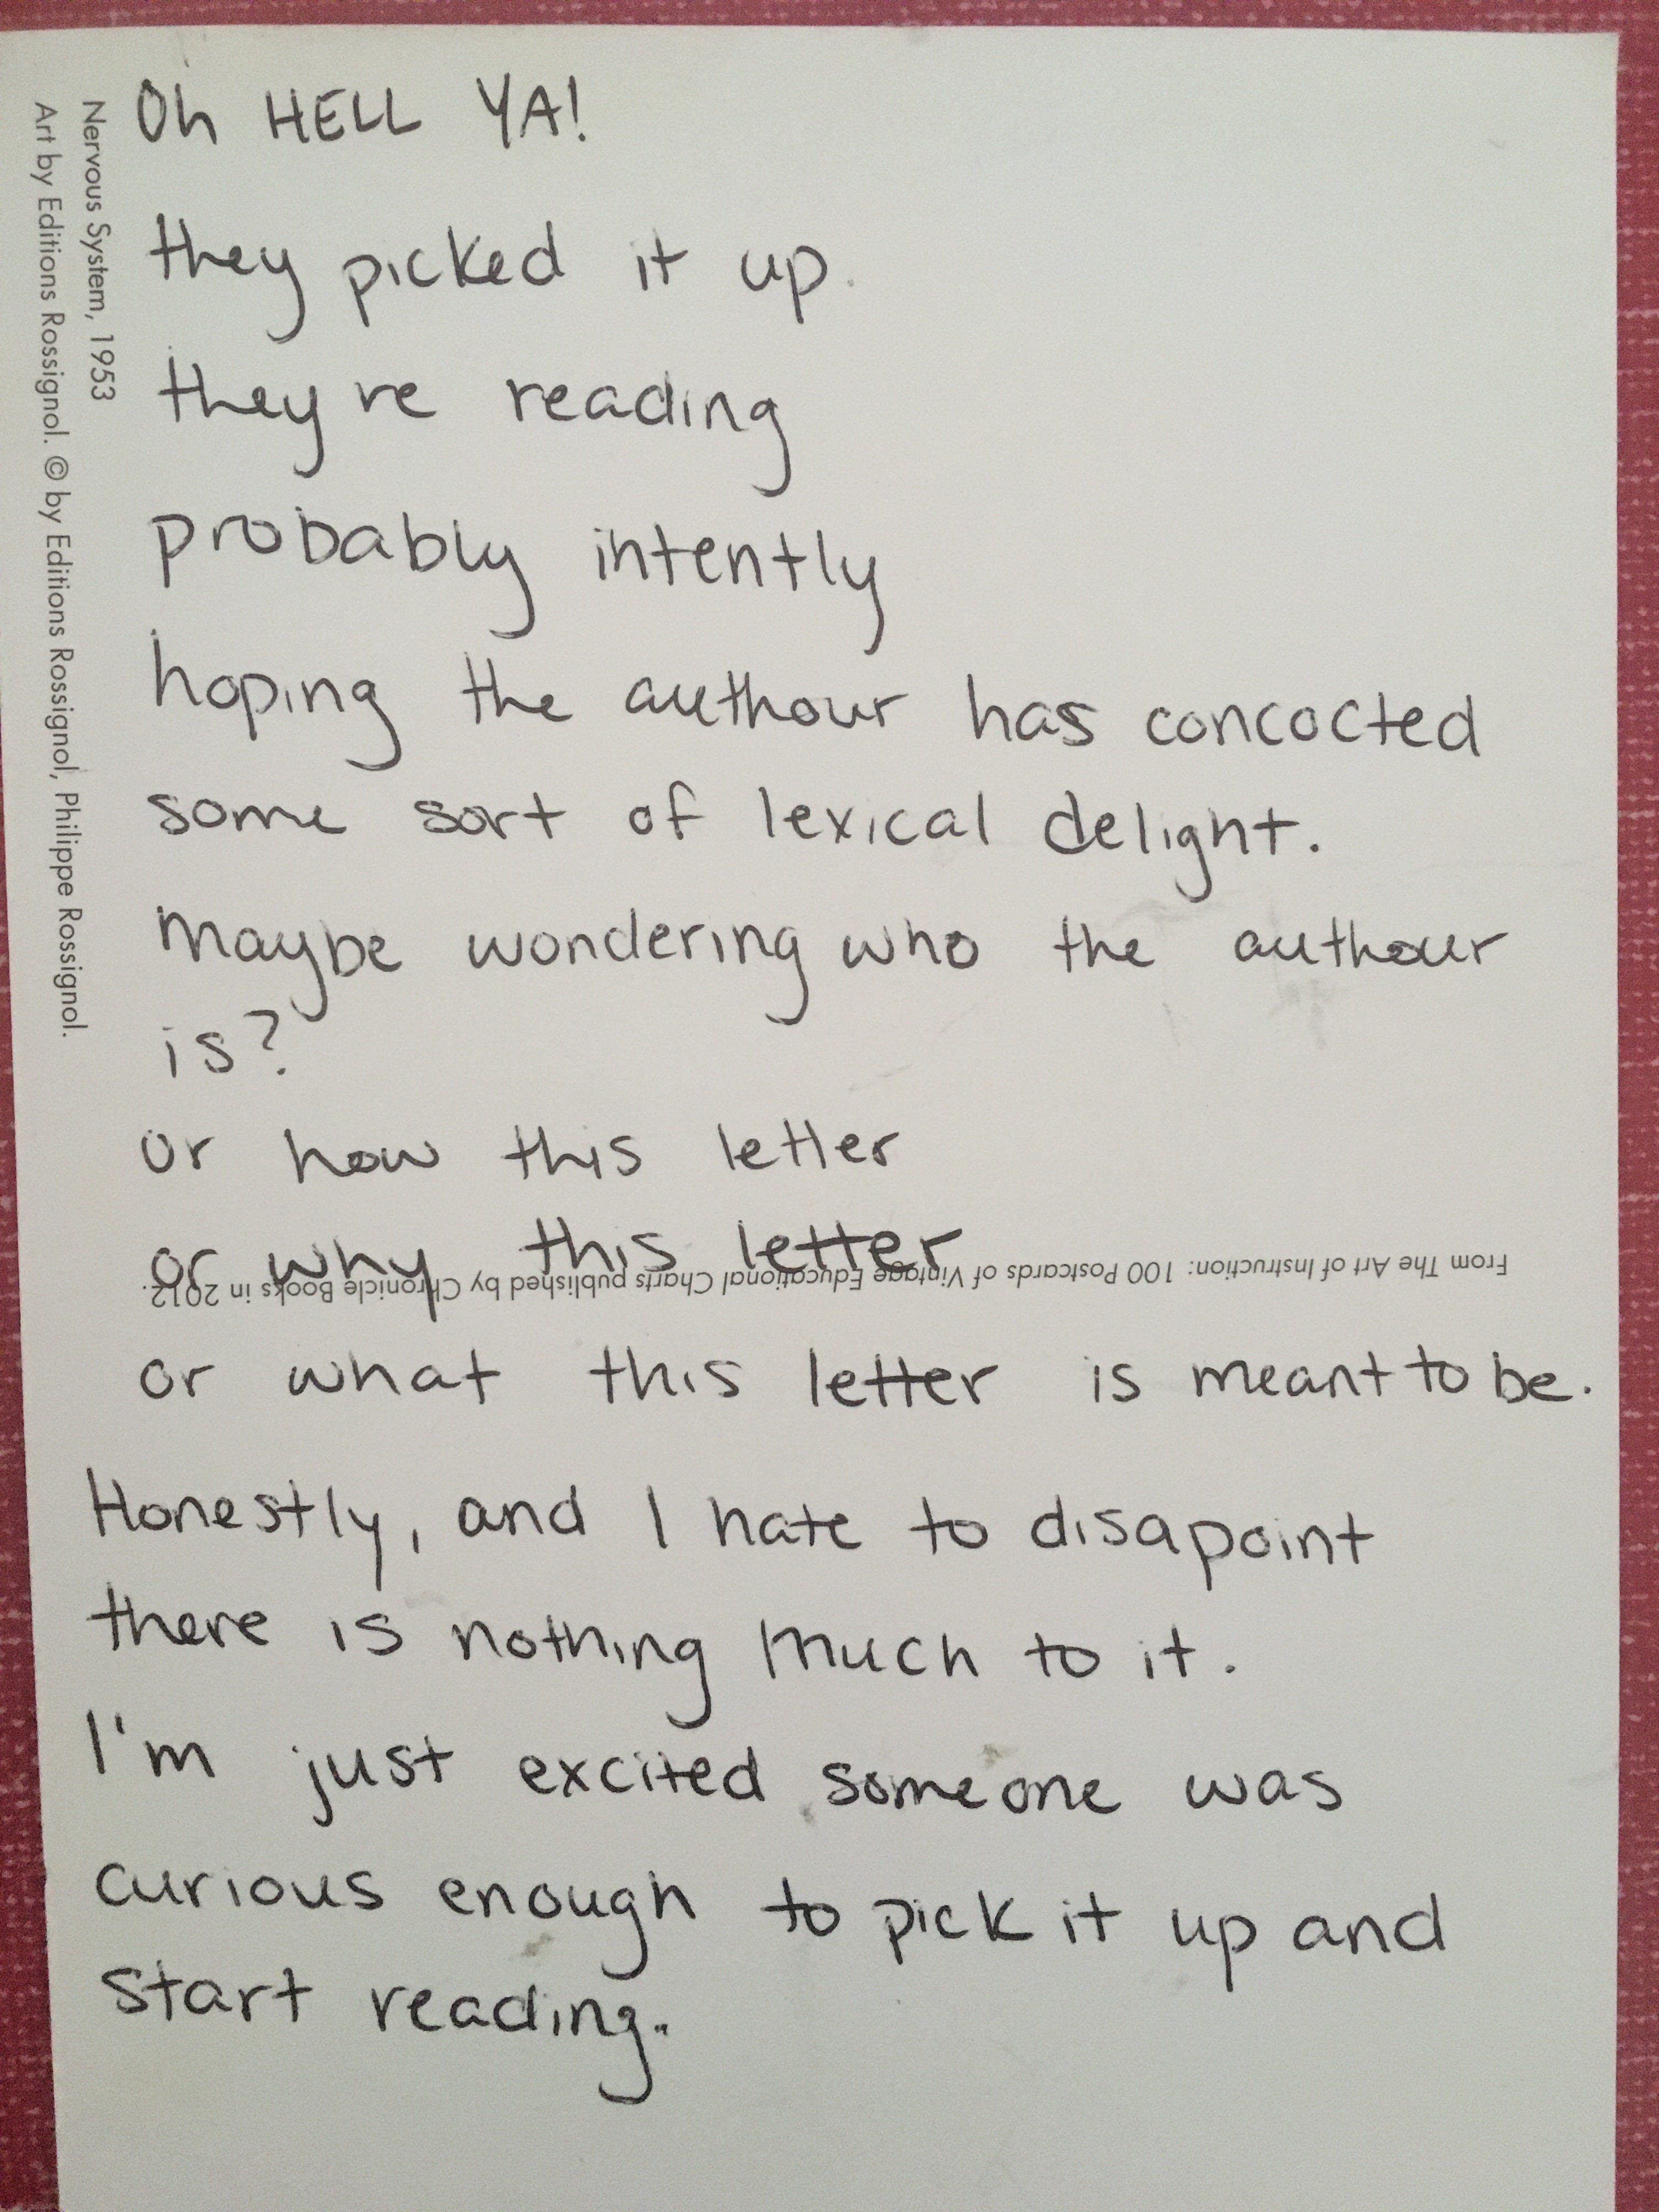 Oh HELL YA!
they picked it up.
they re reading
probably intently
hoping the authour has concocted
some sort of lexical delight.
Maybe wondering who the authour
is?
or how this letter
or why this letter
or what this letter is meant to be.
Honestly, and I hate to disapoint
there is nothing much to it.
I'm just excited someone was
curious enough to pick it up and
start reading.
Nervous System, 1953
Art by Editions Rossignol. © by Editions Rossignol, Philippe Rossignol.
From The Art of Instruction: 100 Postcards of Vintage Educational Charts published by Chronicle Books in 2012.